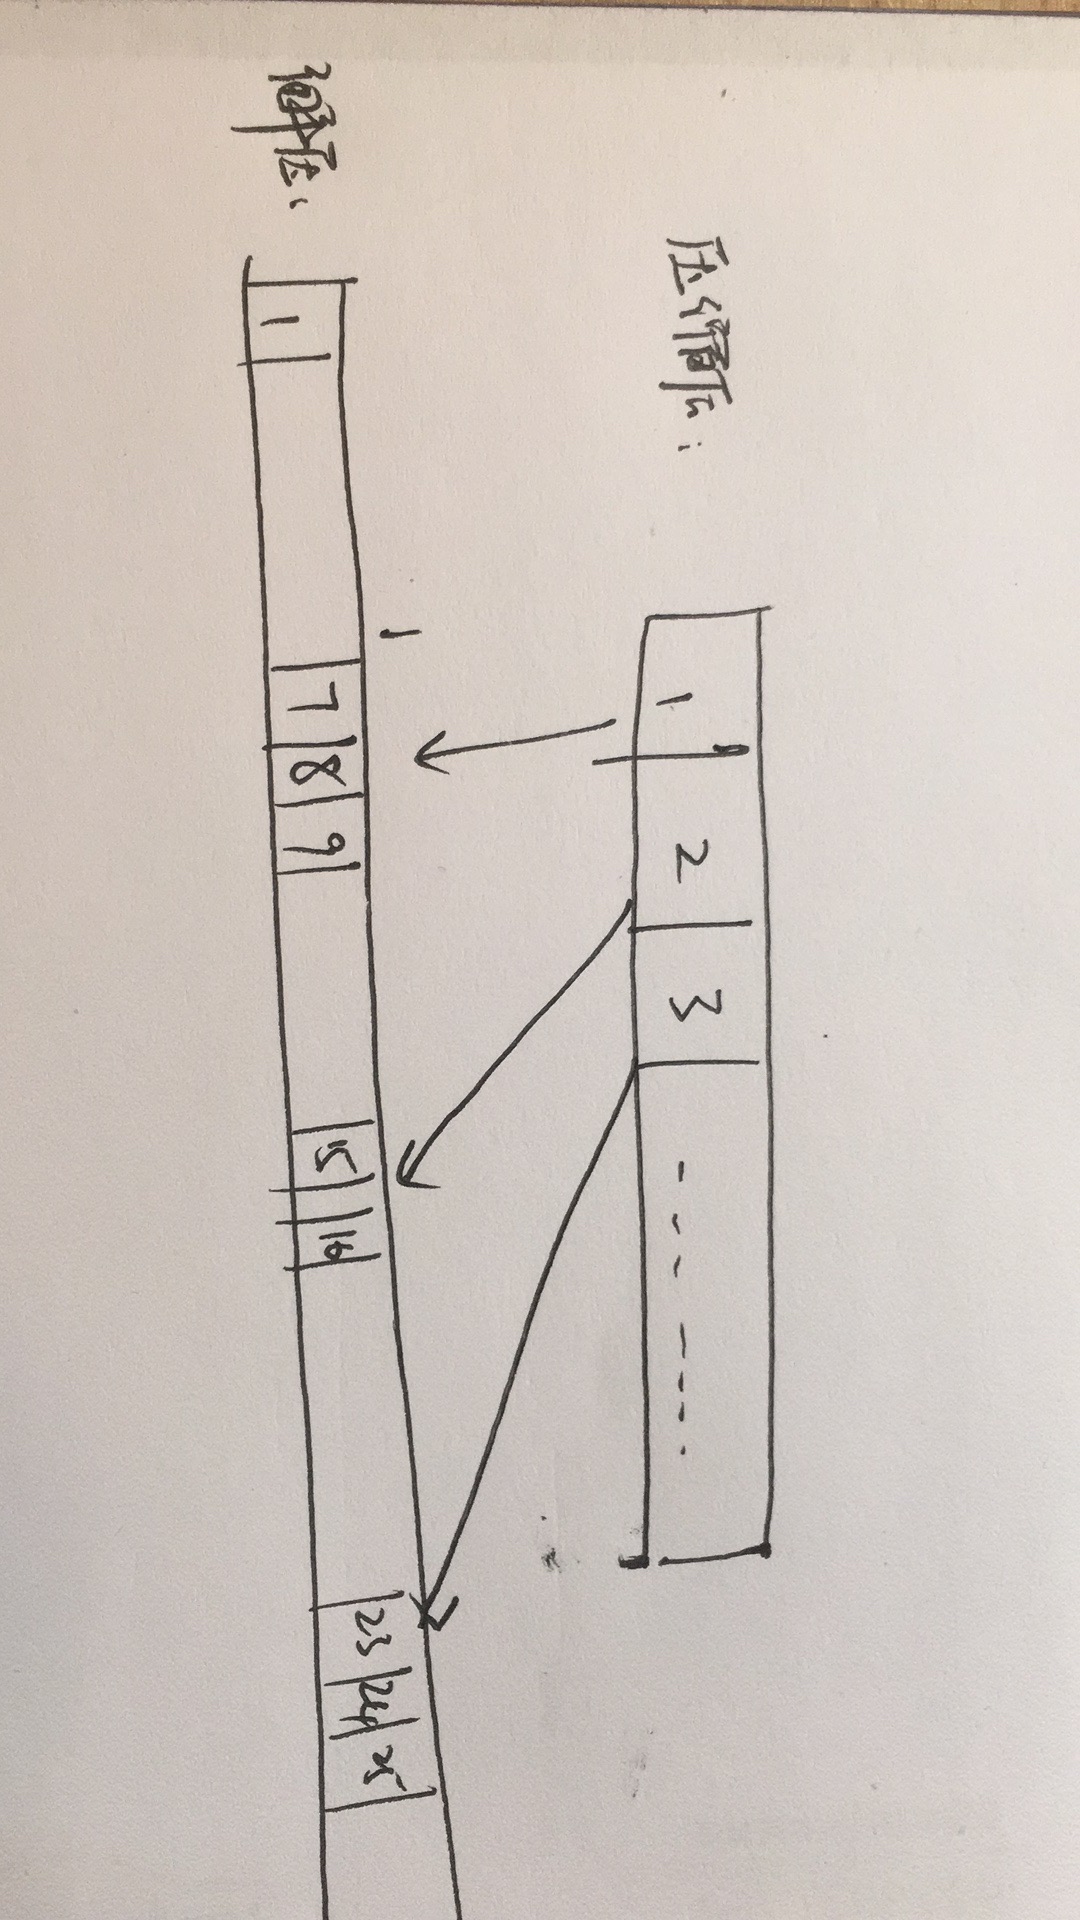 压缩后:
1 2 3 - - - - - - .
解压:
1 7 8 9 15 16 23 24 25